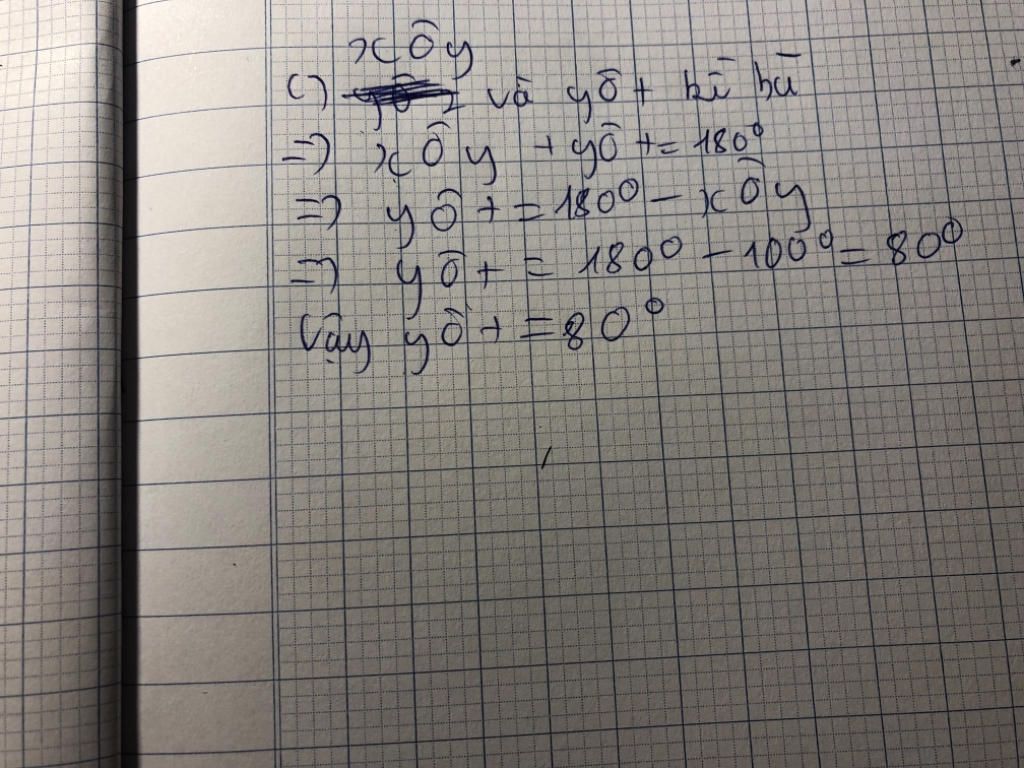 xÔy
c) và yÔt kề bù
=> xÔy + yÔt = 180⁰
=> yÔt = 180⁰ - xÔy
=> yÔt = 180⁰ - 100⁰ = 80⁰
Vậy yÔt = 80⁰